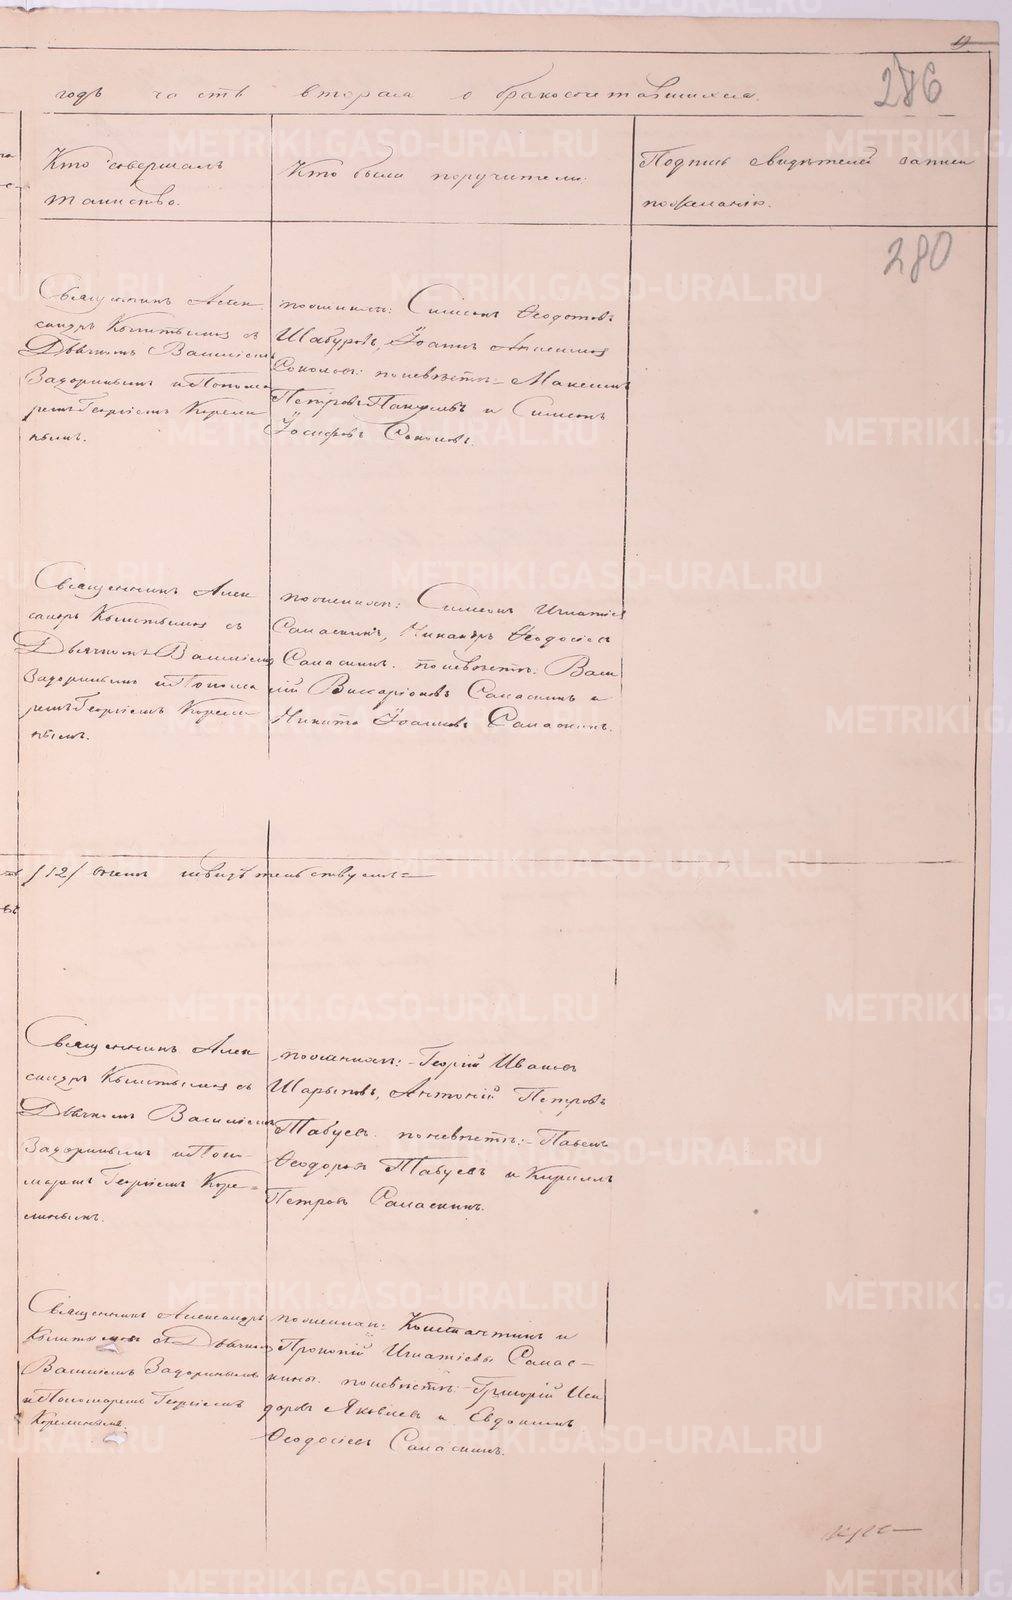 годъ часть вторая о бракосочетавшихся.
286
Кто совершалъ
таинство.
Кто были поручители.
Подпись свидѣтелей записи
по желанію.
280
Священникъ Алек
сандръ Кыштымовъ съ
Дьячкомъ Василіемъ
Задоринымъ и Понома
ремъ Георгіемъ Корели
нымъ.
по женихѣ: Симеонъ Ѳеодотовъ
Шабуровъ, Іоаннъ
Соколовъ: по невѣстѣ – Максимъ
Петровъ и Симеонъ
Іосифовъ Соколовъ.
Священникъ Алек
сандръ Кыштымовъ съ
Дьячкомъ Василіемъ
Задоринымъ и Понома
ремъ Георгіемъ Корели
нымъ.
по женихѣ: Симеонъ Игнатіевъ
Саласкинъ, Никандръ Ѳеодосіевъ
Саласкинъ. по невѣстѣ: Васи
лій Виссаріоновъ Саласкинъ и
Никита Іоанновъ Саласкинъ.
/12/ въ чемъ и свидѣтельствуемъ =
Священникъ Алек
сандръ Кыштымовъ съ
Дьячкомъ Василіемъ
Задоринымъ и Поно
маремъ Георгіемъ Коре=
линымъ.
по женихѣ: – Георгій Ивановъ
Шарыповъ, Антоній Петровъ
Табуевъ. по невѣстѣ: – Павелъ
Ѳеодоровъ Табуевъ и Кириллъ
Петровъ Саласкинъ.
Священникъ Александръ
Кыштымовъ съ Дьячкомъ
Василіемъ Задоринымъ
и Пономаремъ Георгіемъ
Корелинымъ.
по женихѣ: Константинъ и
Прокопій Игнатіевы Салас-
кины. по невѣстѣ: – Григорій Иси
доровъ Яковлевъ и Евдокимъ
Ѳеодосіевъ Саласкинъ.
METRIKI.GASO-URAL.RU